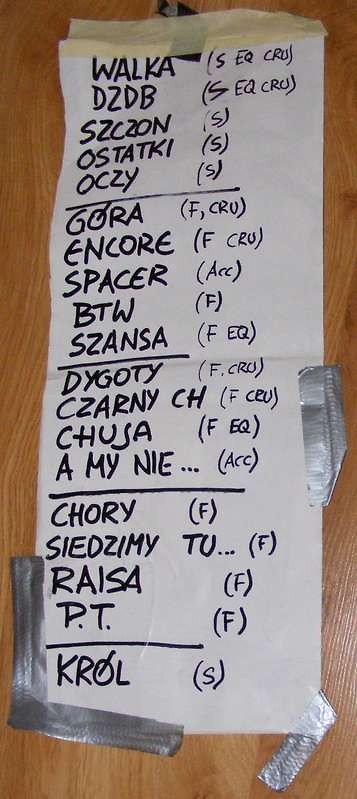 WALKA (S EQ CRU)
DZDB (S EQ CRU)
SZCZON (S)
OSTATKI (S)
OCZY (S)
GÓRA (F, CRU)
ENCORE (F CRU)
SPACER (Acc)
BTW (F)
SZANSA (F EQ)
DYGOTY (F, CRU)
CZARNY CH (F CRU)
CHUJA (F EQ)
A MY NIE... (Acc)
CHORY (F)
SIEDZIMY TU... (F)
RAISA (F)
P.T. (F)
KRÓL (S)